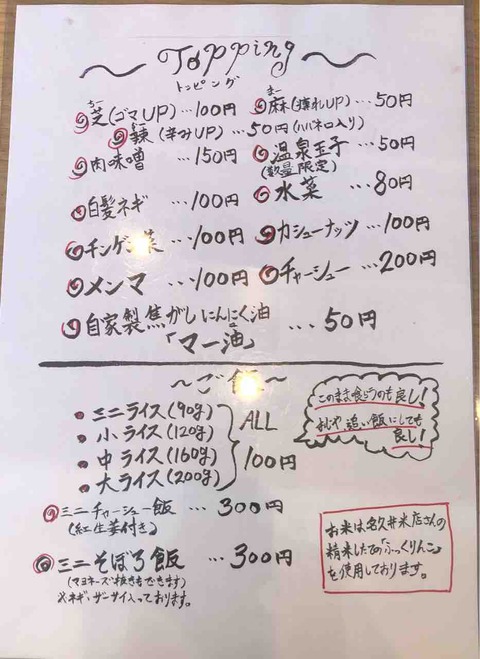 Topping
トッピング
芝(ゴマUP)…100円
麻(痺れUP)…50円
辣(辛みUP)…50円(ハバネロ入り)
肉味噌…150円
温泉玉子…50円
(数量限定)
白髪ネギ…100円
水菜…80円
チンゲン菜…100円
カシューナッツ…100円
メンマ…100円
チャーシュー…200円
自家製焦がしにんにく油
「マー油」…50円
〜ご飯〜
ミニライス(90g)
小ライス(120g)
中ライス(160g)
大ライス(200g)
ALL
100円
このまま喰らうのも良し!
追い飯にしても
良し!
ミニチャーシュー飯…300円
(紅生姜付き)
ミニそぼろ飯…300円
(マヨネーズ抜きもできます)
※ネギ、ザーサイ入っております。
お米は名久井米店さんの
精米したての「ふっくりんこ」
を使用しております。